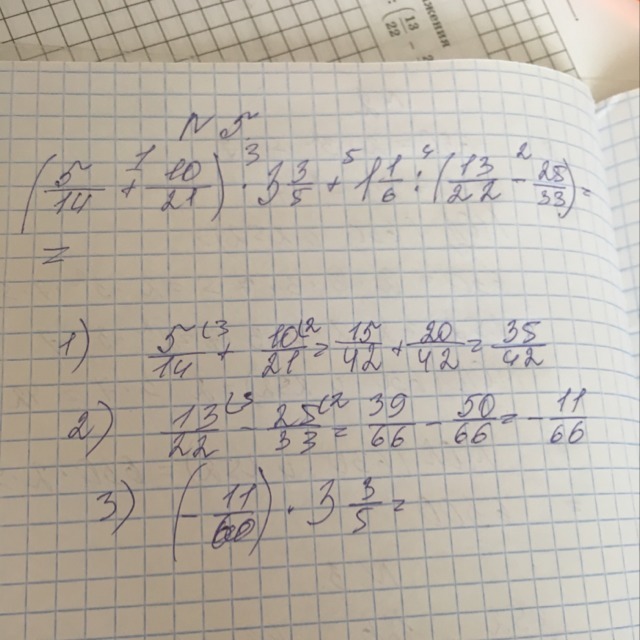 (13/22 -
N 5
(5/14 + 10/21) · 3 3/5 + 1 1/6 : (13/22 - 25/33) =
=
1) 5/14 + 10/21 = 15/42 + 20/42 = 35/42
2) 13/22 - 25/33 = 39/66 - 50/66 = - 11/66
3) (- 11/66) · 3 3/5 =